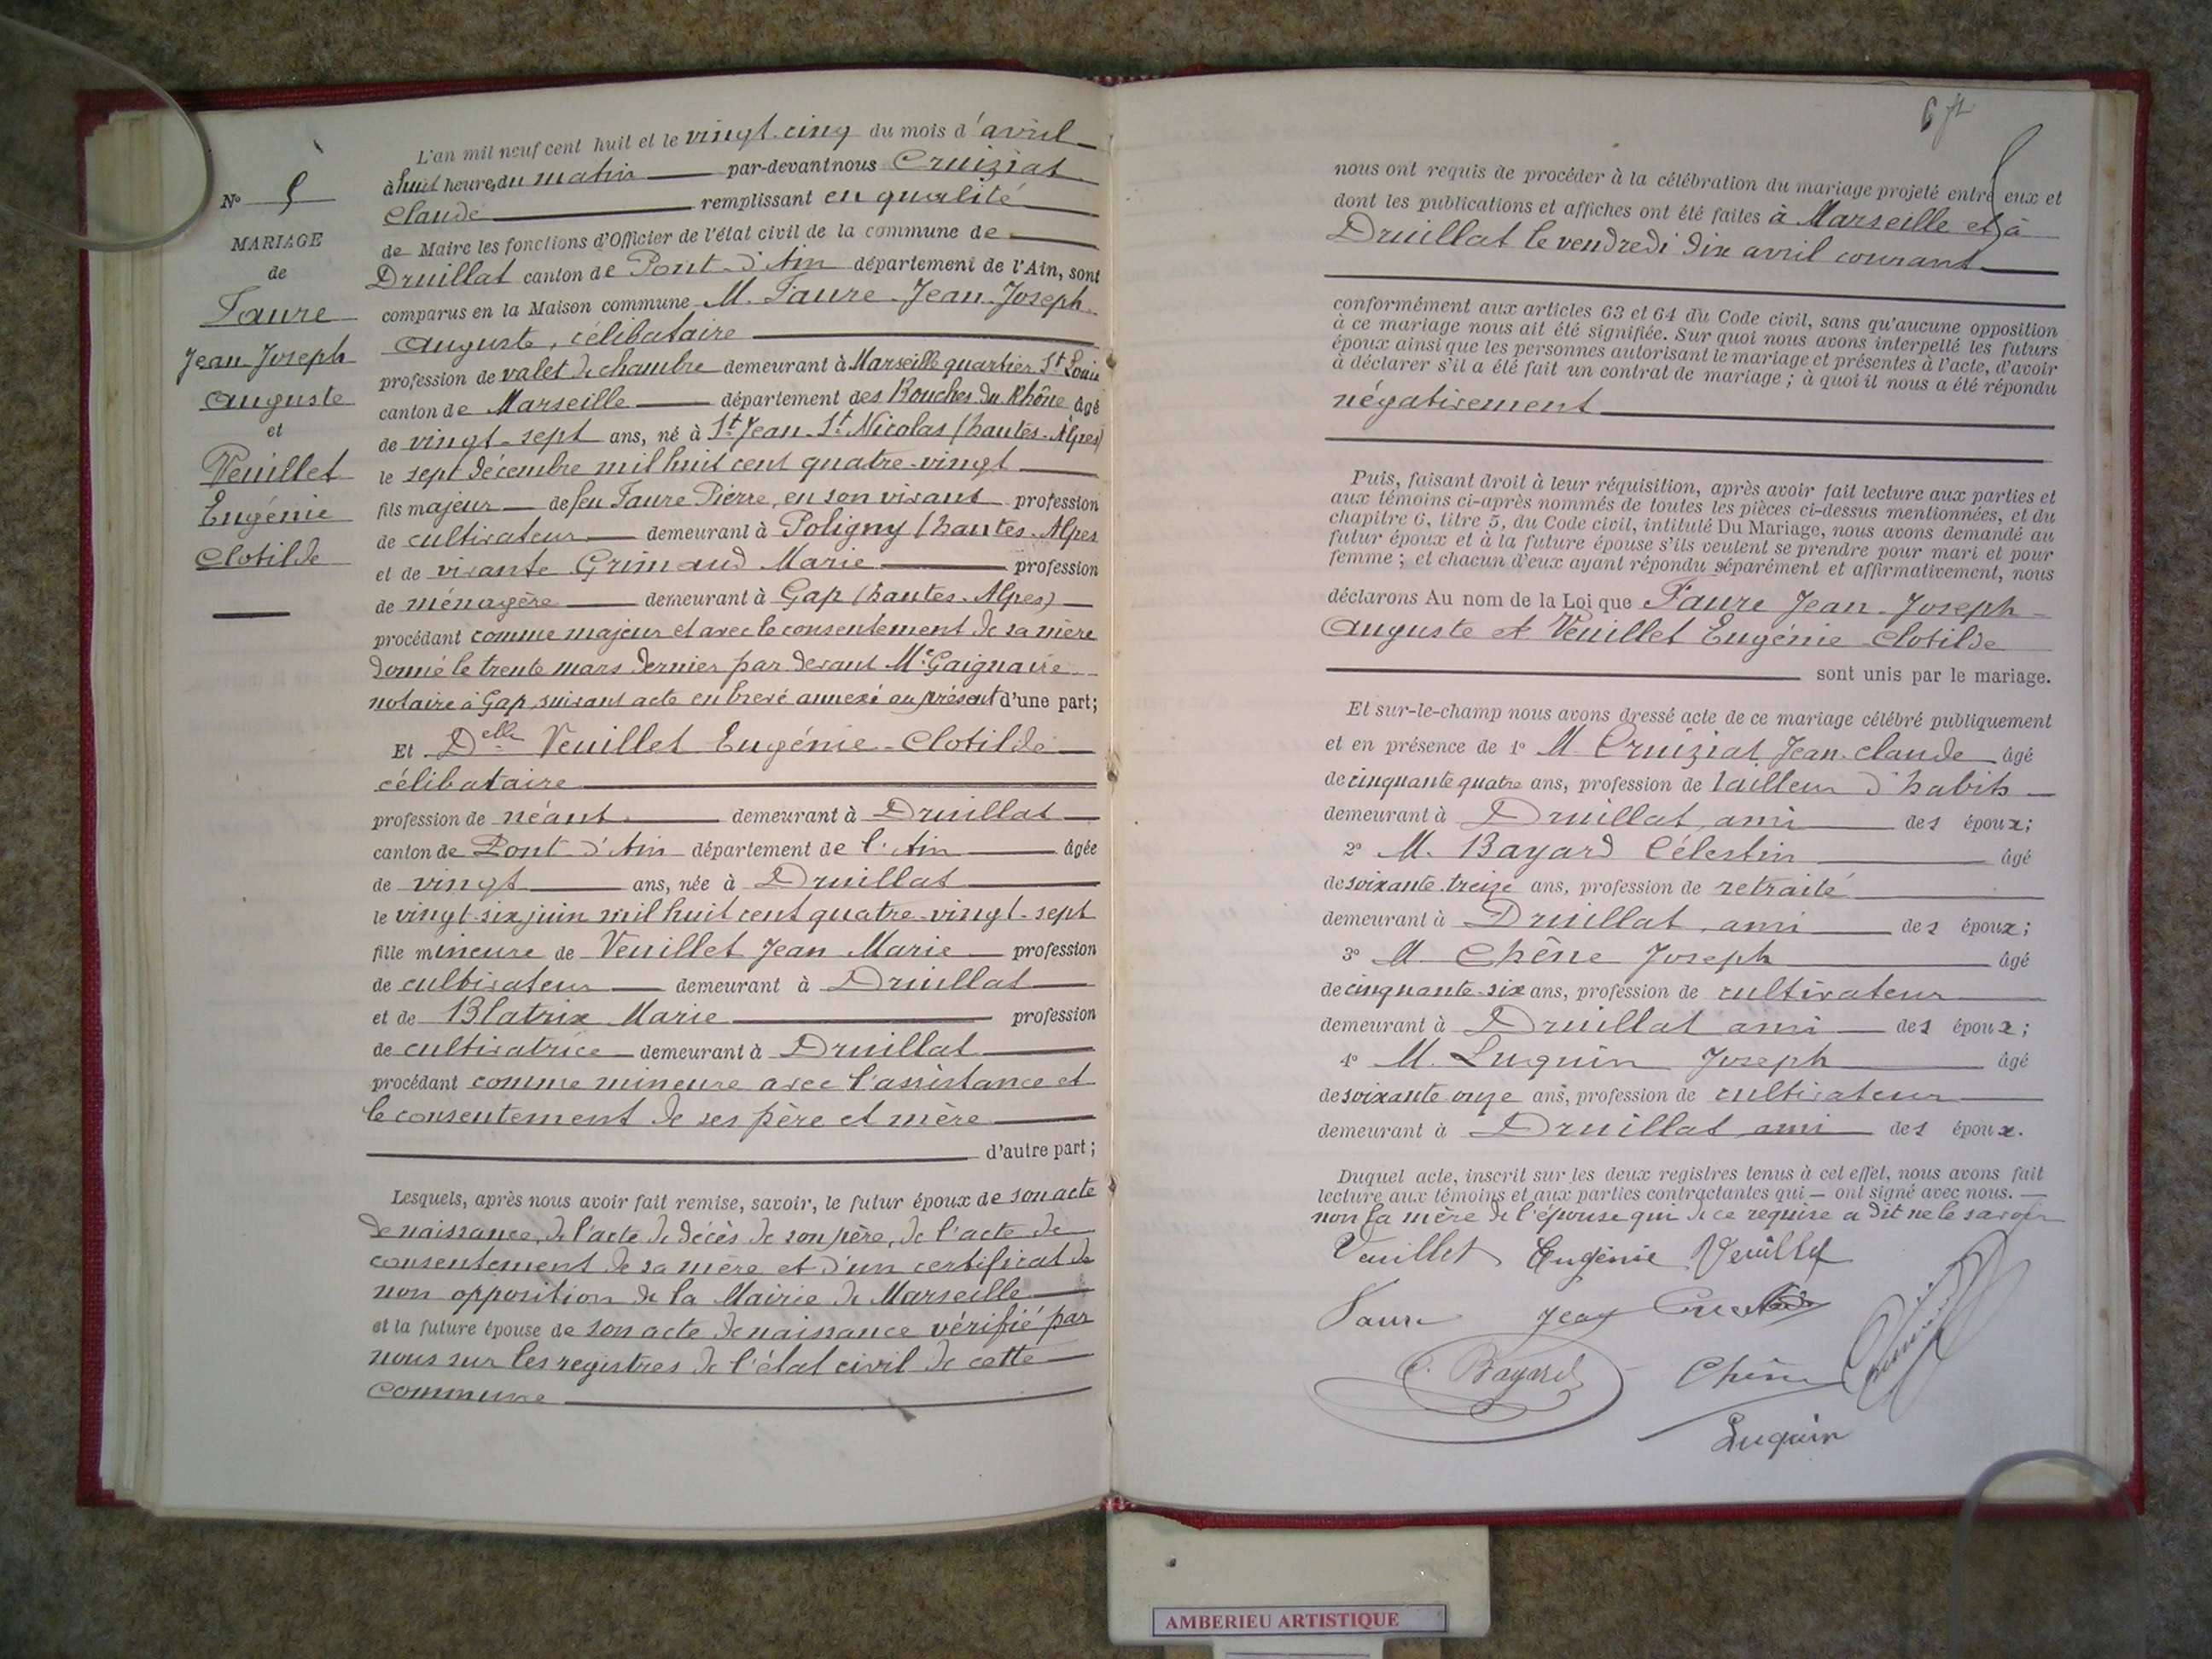 L'an mil neuf cent huit et le vingt-cinq du mois d'avril
à huit heures du matin par-devant nous Cruiziat
Claude remplissant en qualité
de Maire les fonctions d'Officier de l'état civil de la commune de
Druillat canton de Pont-d'Ain département de l'Ain, sont
comparus en la Maison commune M. Faure Jean-Joseph
Auguste, célibataire
profession de valet de chambre demeurant à Marseille quartier St Louis
canton de Marseille département des Bouches du Rhône âgé
de vingt-sept ans, né à St Jean-St Nicolas (hautes-Alpes)
le sept décembre mil huit cent quatre-vingt
fils majeur de feu Faure Pierre, en son vivant profession
de cultivateur demeurant à Poligny (hautes-Alpes
et de vivante Grimaud Marie profession
de ménagère demeurant à Gap (hautes-Alpes)
procédant comme majeur et avec le consentement de sa mère
donné le trente mars dernier par devant Me Gaignaire
notaire à Gap, suivant acte en brevé annexé au présent d'une part;
Et Delle Veuillet Eugénie-Clotilde
célibataire
profession de néant demeurant à Druillat
canton de Pont-d'Ain département de l'Ain âgée
de vingt ans, née à Druillat
le vingt-six juin mil huit cent quatre-vingt-sept
fille mineure de Veuillet Jean Marie profession
de cultivateur demeurant à Druillat
et de Blatrix Marie profession
de cultivatrice demeurant à Druillat
procédant comme mineure avec l'assistance et
le consentement de ses père et mère
d'autre part;
Lesquels, après nous avoir fait remise, savoir, le futur époux de son acte
de naissance, de l'acte de décès de son père, de l'acte de
consentement de sa mère et d'un certificat de
non opposition de la Mairie de Marseille
et la future épouse de son acte de naissance vérifié par
nous sur les registres de l'état civil de cette
commune
N° 5
MARIAGE
de
Faure
Jean-Joseph
Auguste
et
Veuillet
Eugénie
Clotilde
nous ont requis de procéder à la célébration du mariage projeté entre eux et
dont les publications et affiches ont été faites à Marseille et à
Druillat le vendredi dix avril courant
conformément aux articles 63 et 64 du Code civil, sans qu'aucune opposition
à ce mariage nous ait été signifiée. Sur quoi nous avons interpellé les futurs
époux ainsi que les personnes autorisant le mariage et présentes à l'acte, d'avoir
à déclarer s'il a été fait un contrat de mariage; à quoi il nous a été répondu
négativement
Puis, faisant droit à leur réquisition, après avoir fait lecture aux parties et
aux témoins ci-après nommés de toutes les pièces ci-dessus mentionnées, et du
chapitre 6, titre 5, du Code civil, intitulé Du Mariage, nous avons demandé au
futur époux et à la future épouse s'ils veulent se prendre pour mari et pour
femme; et chacun d'eux ayant répondu séparément et affirmativement, nous
déclarons Au nom de la Loi que Faure Jean-Joseph
Auguste et Veuillet Eugénie-Clotilde
sont unis par le mariage.
Et sur-le-champ nous avons dressé acte de ce mariage célébré publiquement
et en présence de 1° M. Cruiziat Jean-Claude âgé
de cinquante quatre ans, profession de tailleur d'habits
demeurant à Druillat ami des époux;
2° M. Bayard Célestin âgé
de soixante-treize ans, profession de retraité
demeurant à Druillat, ami des époux;
3° M. Chêne Joseph âgé
de cinquante-six ans, profession de cultivateur
demeurant à Druillat ami des époux;
4° M. Luquin Joseph âgé
de soixante onze ans, profession de cultivateur
demeurant à Druillat ami des époux.
Duquel acte, inscrit sur les deux registres tenus à cet effet, nous avons fait
lecture aux témoins et aux parties contractantes qui — ont signé avec nous. —
non la mère de l'épouse qui de ce requise a dit ne le savoir
Veuillet Eugénie Veuillet
Faure Jean
C. Bayard Chêne
Luquin
AMBERIEU ARTISTIQUE